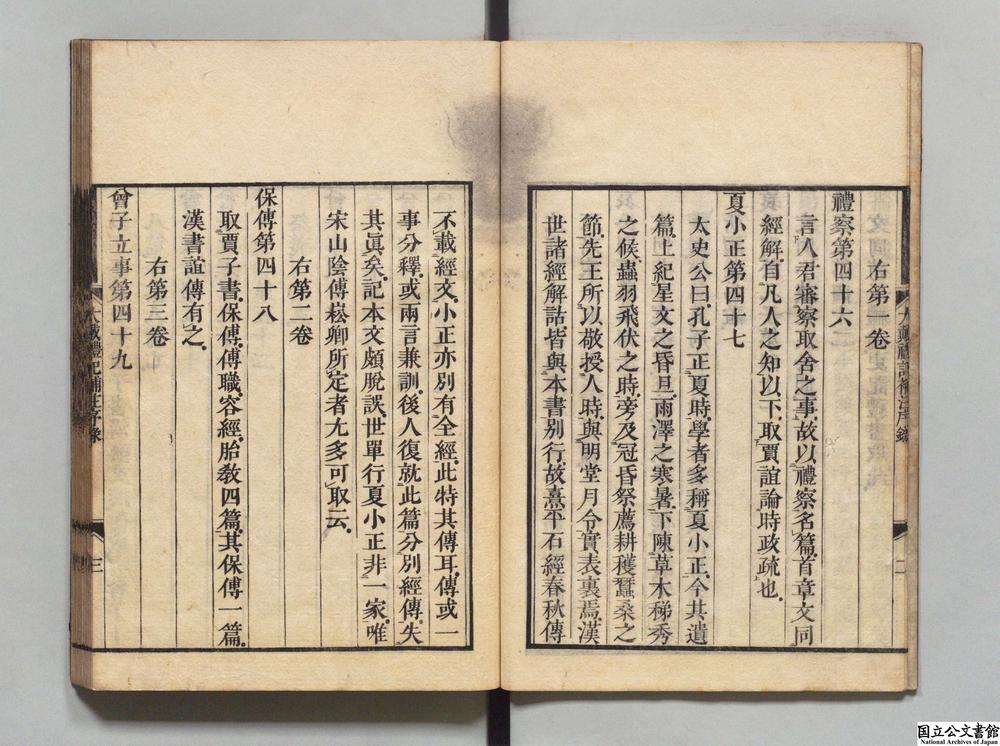 右第一卷
禮察第四十六
言人君審察取舍之事故以禮察名篇首章文同
經解自凡人之知以下取賈誼論時政疏也
夏小正第四十七
太史公曰孔子正夏時學者多稱夏小正今其遺
篇上紀星文之昏旦雨澤之寒暑下陳草木稊秀
之候蟲羽飛伏之時旁及冠昏祭薦耕穫蠶桑之
節先王所以敬授人時與明堂月令實表裏焉漢
世諸經解詁皆與本書別行故熹平石經春秋傳
不載經文小正亦別有全經此特其傳耳傳或一
事分釋或兩言兼訓後人復就此篇分別經傳失
其眞矣記本文頗脫誤世單行夏小正非一家唯
宋山陰傅崧卿所定者尢多可取云
右第二卷
保傅第四十八
取賈子書保傅傅職容經胎敎四篇其保傅一篇
漢書誼傳有之
右第三卷
曾子立事第四十九
大戴禮記補注序錄
二
大戴禮記補注序錄
三
国立公文書館
National Archives of Japan